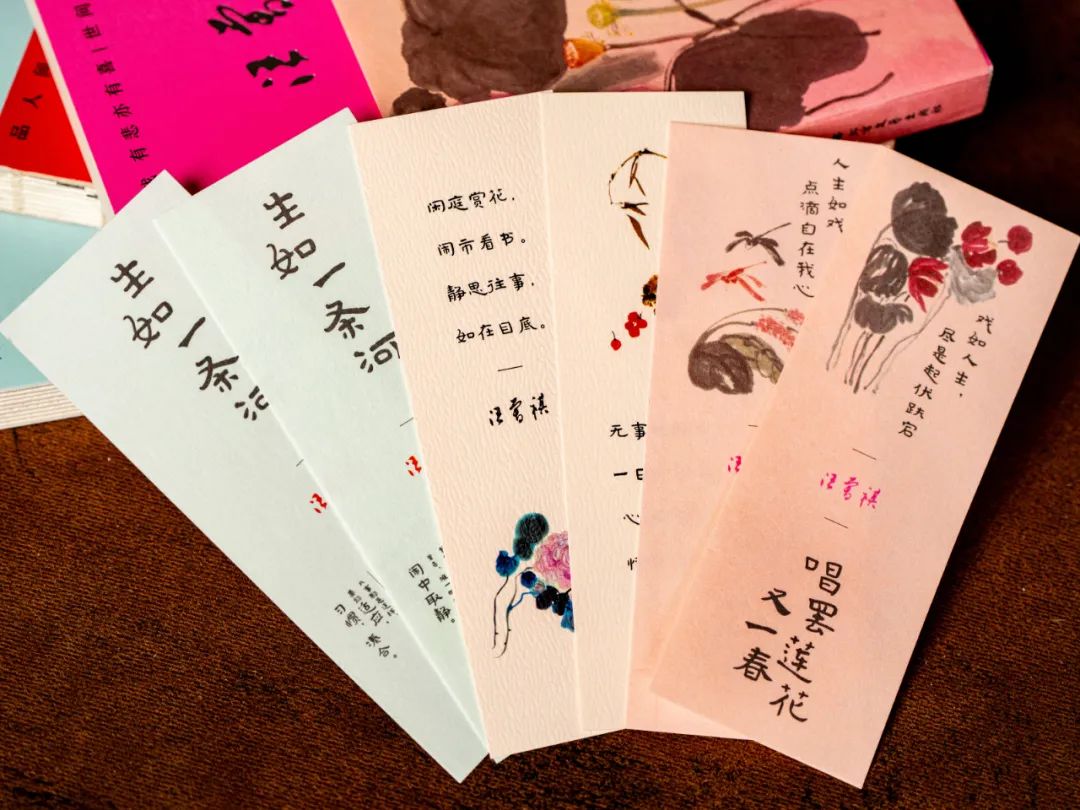 有悲亦有喜|世间
汪曾
生如一条河
汪
习惯，适应，凑合。
生如一条河
汪
闹中取静。
闲庭赏花，
闹市看书。
静思往事，
如在目底。
—
汪曾祺
无事
一日
心
人生如戏
点滴自在我心
汪
戏如人生，
尽是起伏跌宕
—
汪曾祺
—
唱罢莲花
又一春